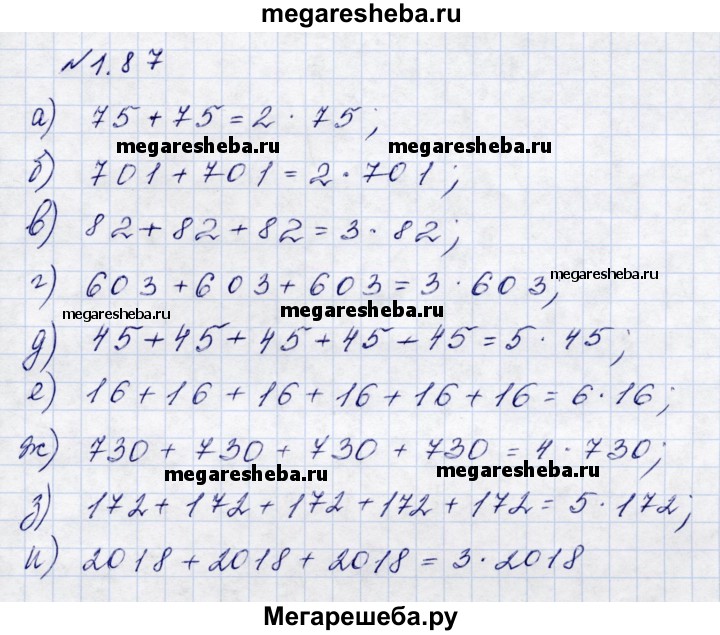 megaresheba.ru
№1.87
а) 75 + 75 = 2 · 75;
megaresheba.ru megaresheba.ru
б) 701 + 701 = 2 · 701;
в) 82 + 82 + 82 = 3 · 82;
г) 603 + 603 + 603 = 3 · 603;
megaresheba.ru
megaresheba.ru megaresheba.ru
д) 45 + 45 + 45 + 45 - 45 = 5 · 45;
е) 16 + 16 + 16 + 16 + 16 + 16 = 6 · 16;
ж) 730 + 730 + 730 + 730 = 4 · 730;
megaresheba.ru megaresheba.ru
з) 172 + 172 + 172 + 172 + 172 = 5 · 172;
и) 2018 + 2018 + 2018 = 3 · 2018
Мегарешеба.ру